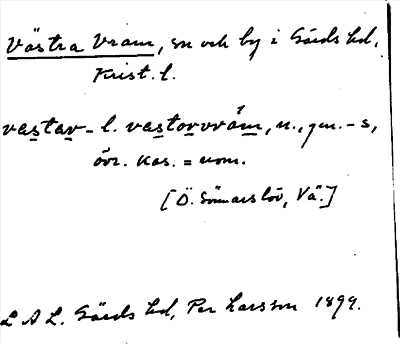 Västra Vram, sn och by i Gärds hd,
Krist. l.
vastav- l. vastorvråm, n., gen. -s,
övr. kas. = nom.
[Ö. Sönnarslöv, Vä.]
L A L. Gärds hd, Per Larsson 1899.